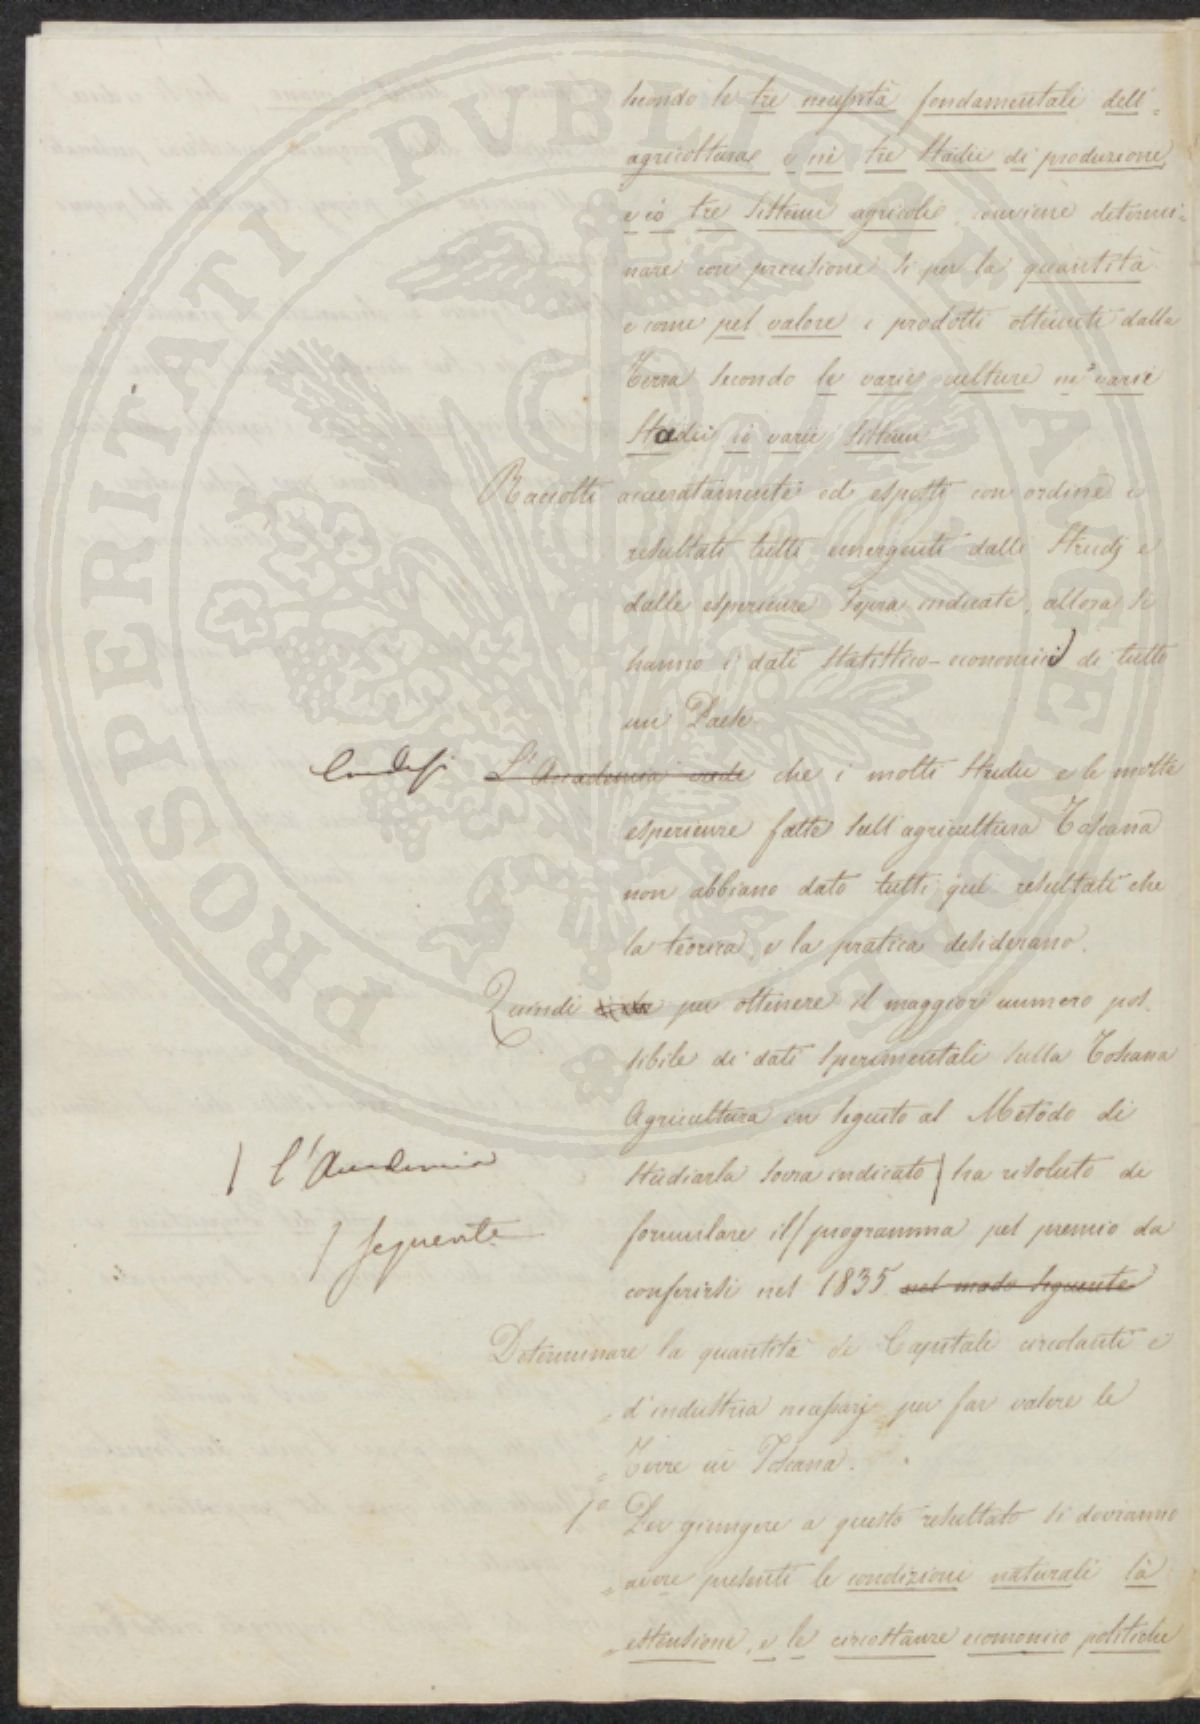 secondo le tre necessità fondamentali dell'
agricoltura e nè tre Stadii di produzione
e io tre Sistemi agricoli, conviene determi-
nare con precisione si per la quantità
e come pel valore i prodotti ottenuti dalla
Terra secondo le varie culture ne' varii
Stadii io varii Sistemi
Raccolti accuratamente ed esposti con ordine i
resultati tutti emergenti dalli Studj e
dalle esperienze sopra indicate, allora si
hanno i dati Statistico-economici di tutto
un Paese.
Credesi L'Accademia vede che i molti Studii e le molte
esperienze fatte sull'agricultura Toscana
non abbiano dato tutti quei resultati che
la teorica, e la pratica desiderano.
Quindi per ottenere il maggior numero pos-
sibile di dati sperimentali sulla Toscana
Agricultura in seguito al Metodo di
/ l'Accademia studiarla sovra indicato / ha risoluto di
/ seguente formulare il / programma pel premio da
conferirsi nel 1835 nel modo seguente
Determinare la quantità di Capitali circolanti e
= d'industria necessarj per far valere le
= Terre in Toscana.
1º Per giungere a questo resultato si dovranno
= avere presenti le condizioni naturali la
= estensione, e le circostanze economico politiche
PROSPERITATI PUBLICAE AUGENDAE